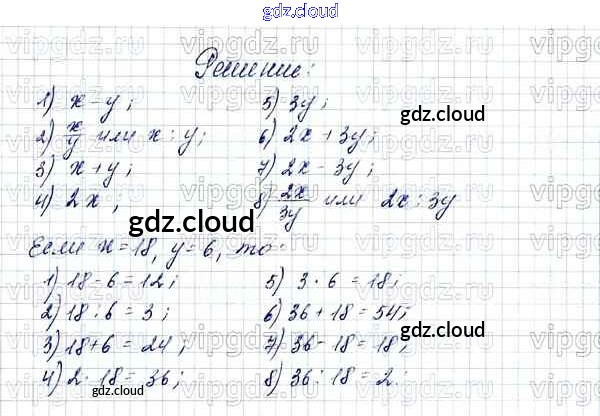 gdz.cloud
Решение:
1) x - y;
2) x/y или x : y;
3) x + y;
4) 2x;
5) 3y;
6) 2x + 3y;
7) 2x - 3y;
8) 2x/3y или 2x : 3y
gdz.cloud
gdz.cloud
Если x = 18, y = 6, то:
1) 18 - 6 = 12;
2) 18 : 6 = 3;
3) 18 + 6 = 24;
4) 2 · 18 = 36;
5) 3 · 6 = 18;
6) 36 + 18 = 54;
7) 36 - 18 = 18;
8) 36 : 18 = 2.
gdz.cloud
gdz.cloud